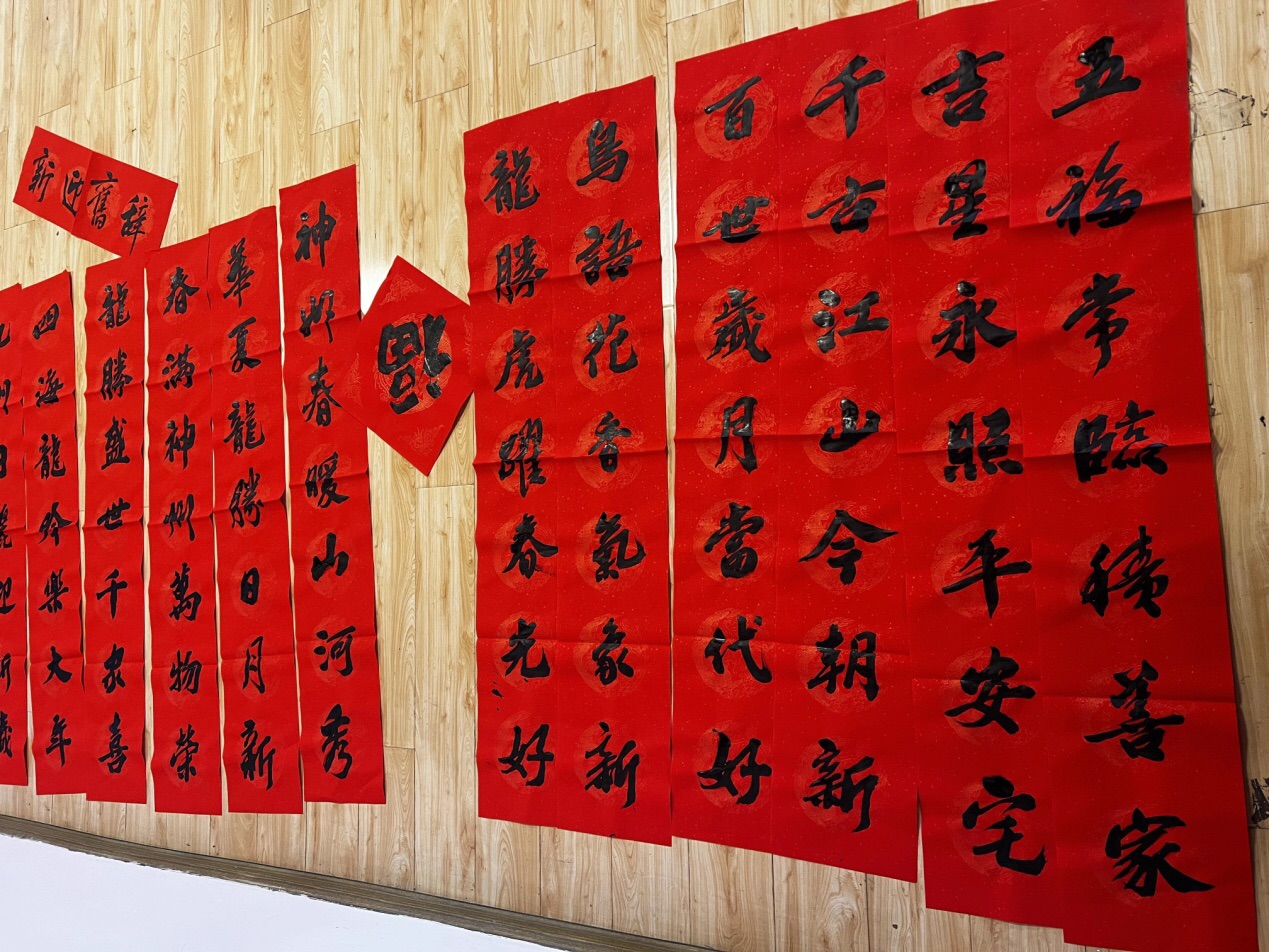 五福常臨積善家
吉星永照平安宅
千古江山今朝新
百世歲月當代好
鳥語花香氣象新
龍騰虎躍春光好
福
神州春暖山河秀
華夏龍騰日月新
春滿神州萬物榮
龍騰盛世千家喜
四海龍吟樂大年
九州日麗迎新歲
辭舊迎新